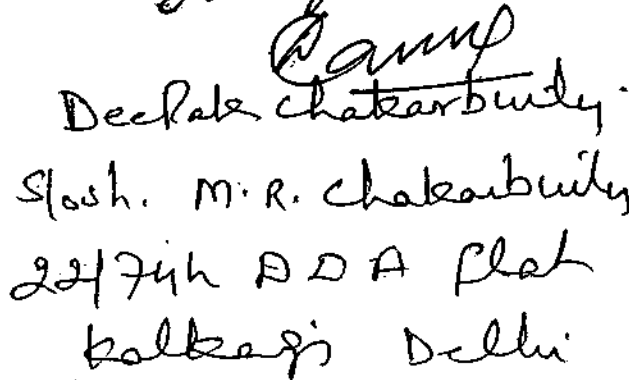 Deepak Chakarbuity.
S/o sh. M.R. Chakarbuity
DDA flat
Kalkaji Delhi